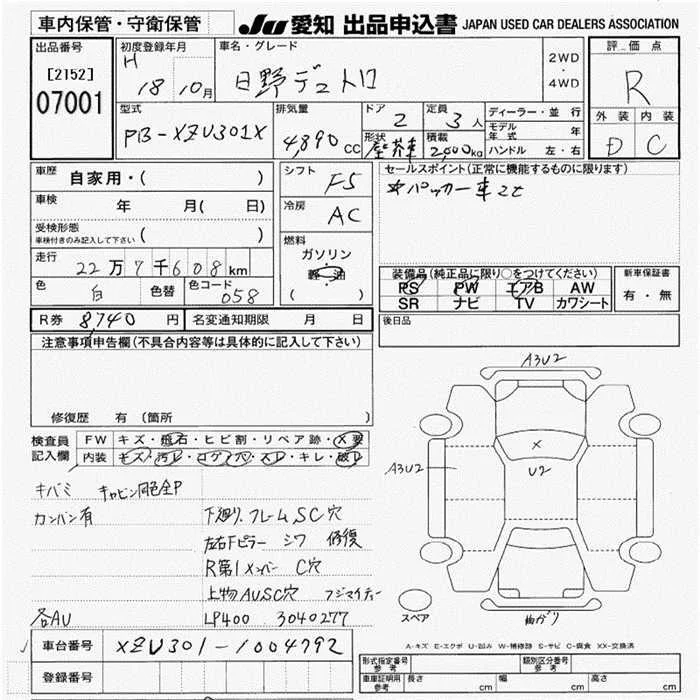 車内保管・守衛保管 JU 愛知 出品申込書 JAPAN USED CAR DEALERS ASSOCIATION
出品番号 初度登録年月 車名・グレード 2WD・4WD 評価点
[2152] H 18 10月 日野デュトロ R
07001 型式 排気量 ドア 定員 ディーラー・並行 外装 内装
PB-XZU301X 4,890cc 2 3人 モデル年式 年 D C
形状 塵芥車 積載 2,000kg ハンドル 左・右
車歴 自家用・( ) シフト F5 セールスポイント(正常に機能するものに限ります)
車検 年 月( 日) 冷房 AC *パッカー車2t
受検形態 車検付きのみ記入して下さい ( )
燃料 ガソリン・軽油 ( )
走行 22万7千608km 装備品(純正品に限り○をつけてください) 新車保証書
色 白 色替 色コード 058 PS PW エアB AW 有・無
SR ナビ TV カワシート
R券 8,740円 名変通知期限 月 日 後日品
注意事項申告欄(不具合内容等は具体的に記入して下さい)
修復歴 有(箇所 )
検査員記入欄 FW キズ・飛石・ヒビ割・リペア跡・X要
内装 キズ・汚レ・コゲ・穴・スレ・キレ・破レ
キバミ キャビン同色全P
カンバン有 下廻り.フレームSC穴
左右Fピラー シワ 修復
R第1メンバー C穴
上物AUSC穴 フジマイティー
各AU LP400 3040277
A3U2
A3U2
X
U2
曲がり
スペア
A-キズ E-エクボ U-凹み W-補修跡 S-サビ C-腐食 XX-交換済
車台番号 XZU301-1004792
登録番号
形式指定番号 参考 類別区分番号 参考
車庫証明用 参考 長さ cm 幅 cm 高さ cm